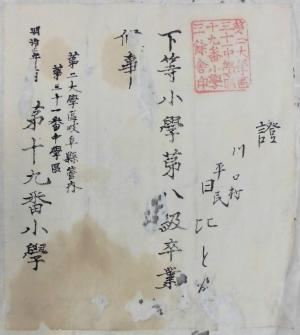 第二大學區
三十一中學區
十九番小學
三餘舎印
證
川口村
平民
日比と
下等小學第八級卒業
候事
第二大學區岐阜縣管内
第三十一番中学區
明治年
第十九番小學